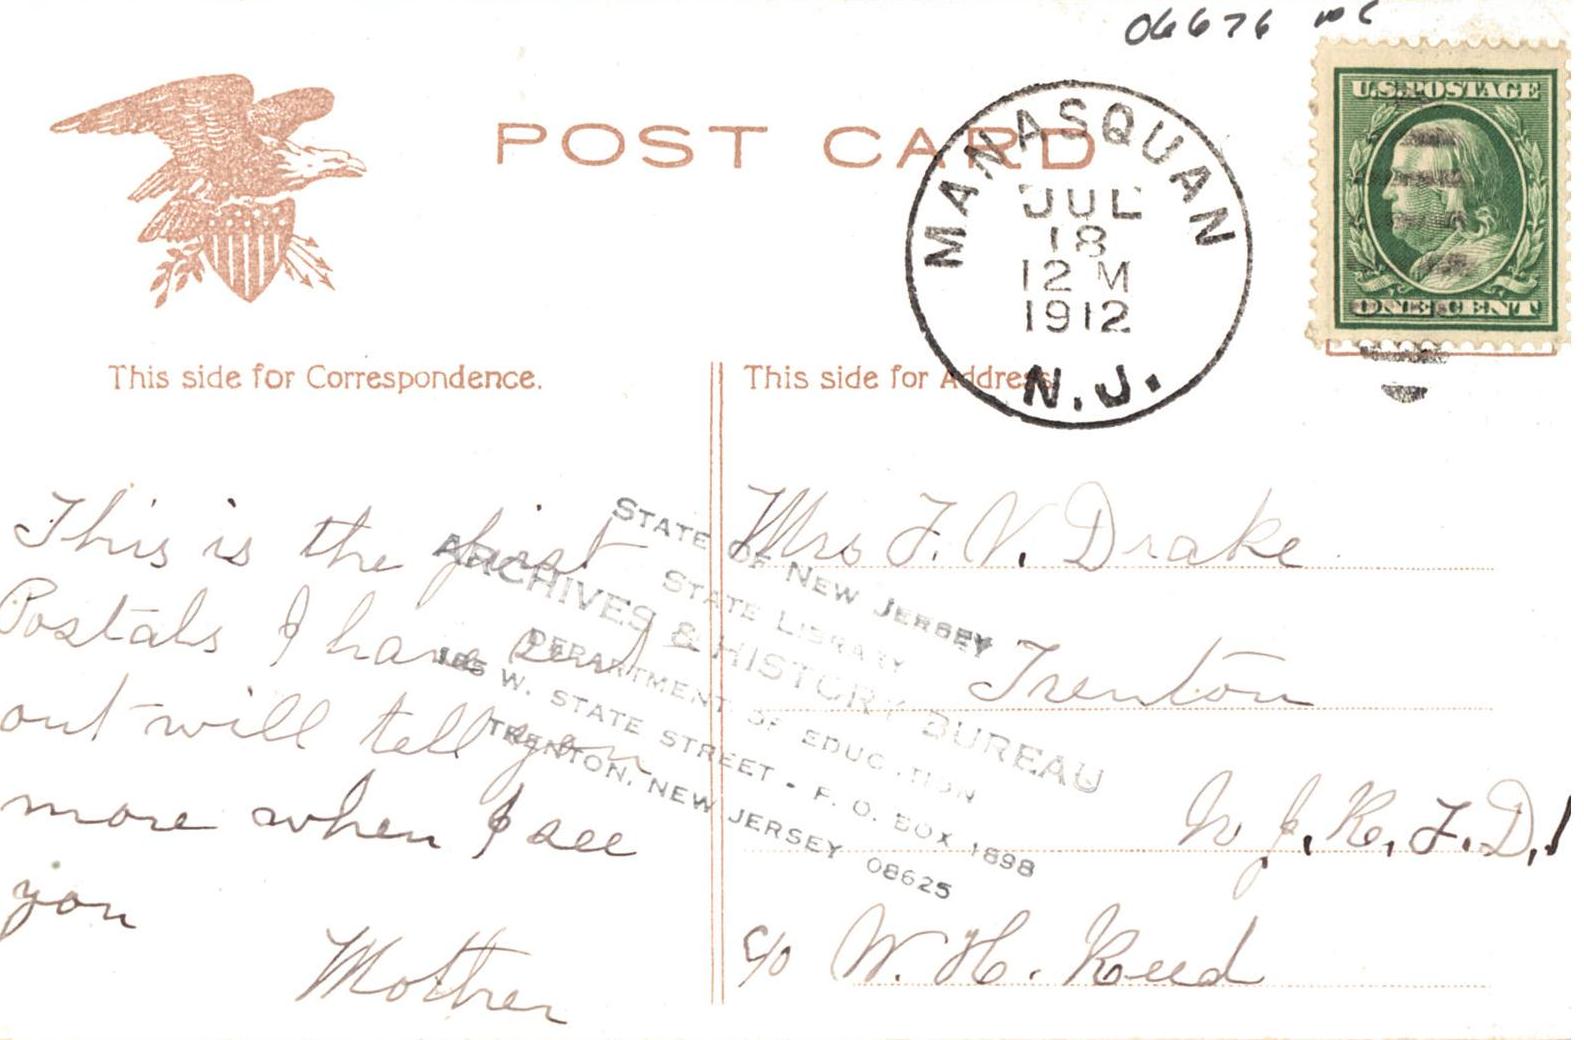 06676
U.S. POSTAGE
ONE CENT
POST CARD
MANASQUAN
JUL
18
12 M
1912
N.J.
This side for Correspondence.
This side for Address
This is the first
Postals I have send
out will tell you
more when I see
you
Mother
Mrs F. V. Drake
Trenton
N J. R. F. D. 1
c/o W. H. Reed
STATE OF NEW JERSEY
STATE LIBRARY
ARCHIVES & HISTORY BUREAU
DEPARTMENT OF EDUCATION
185 W. STATE STREET - P. O. BOX 1898
TRENTON, NEW JERSEY 08625